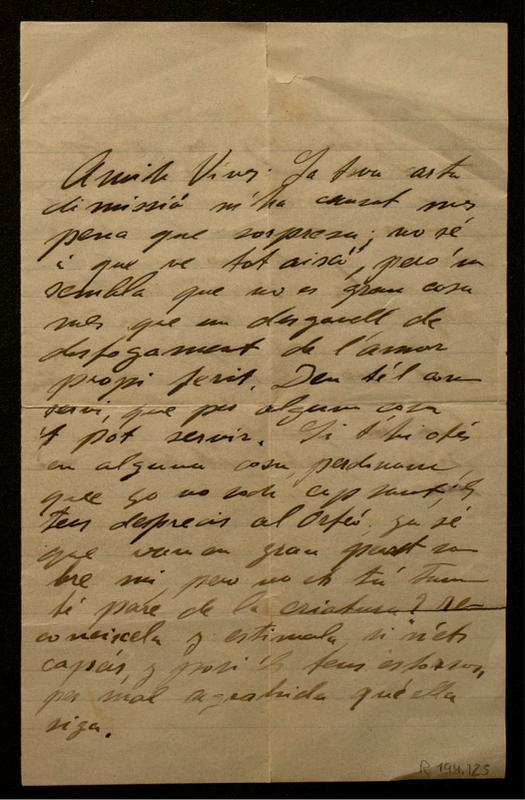 Amich Vives: La teva carta
dimissió m'ha causat mes
pena que sorpresa; no sé
a que ve tót aixó, peró 'm
sembla que no es gran cosa
mes que un desgavell de
desfogament de l'amor
propi ferit. Deu te 'l con
servi, que per alguna cosa
't pot servir. Si t' hi ofés
en alguna cosa, perdonam
que jo no
teus desprecis al Orfeó. ja sé
que van en gran part so
bre mi, pero no ets tú tam
bé pare de la criatura? re
coneixela y estimala, si n'ets
capás, y posi 'ls teus esforsos,
per mal agrahida qué ella
siga.
R 194.125